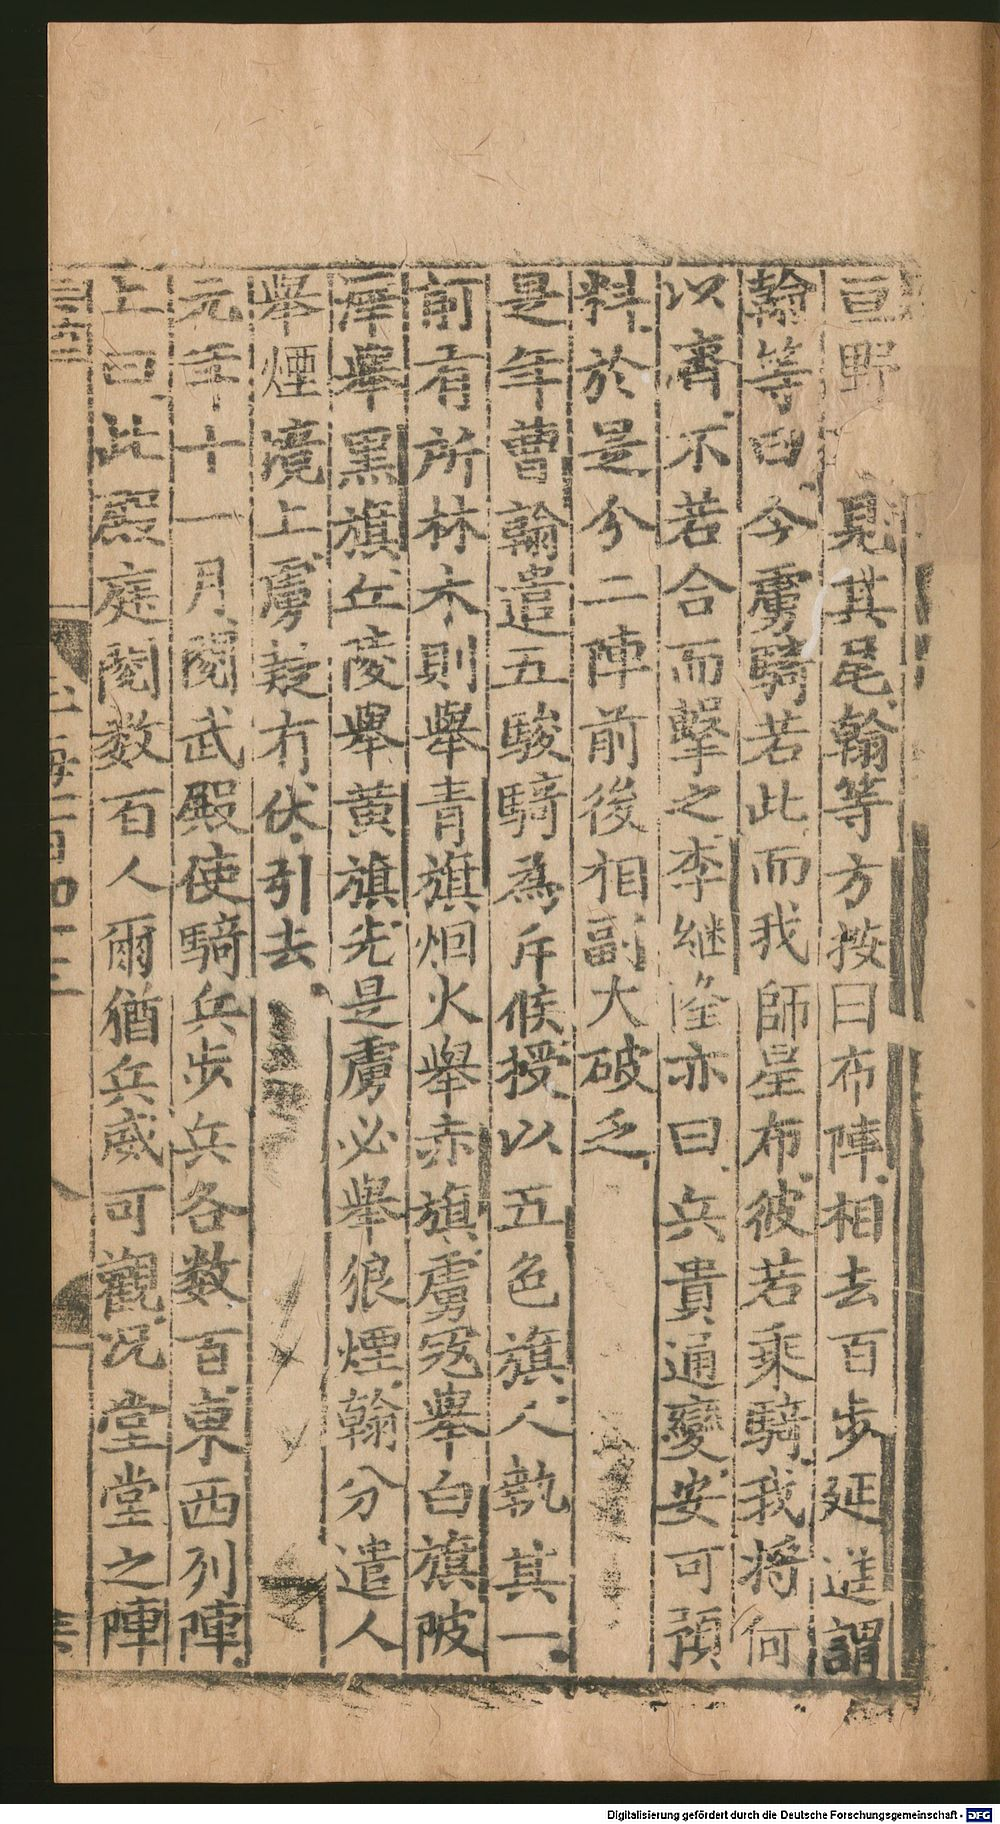 亘野見其尾翰等方按曰布陣相去百步延進謂
翰等曰今虜騎若此而我師星布彼若乘騎我將何
以濟不若合而擊之李継隆亦曰兵貴通變安可預
料於是分二陣前後相副大破之
是年曹翰遣五駿騎為斥候授以五色旗人執其一
前有所林木則舉青旗烟火舉赤旗虜寇舉白旗陂
澤舉黒旗丘陵舉黄旗先是虜必舉狼煙翰分遣人
舉煙境上虜疑有伏引去
元年十一月閱武殿使騎兵步兵各数百東西列陣
上曰此殿庭閱数百人爾猶兵威可觀况堂堂之陣
Digitalisierung gefördert durch die Deutsche Forschungsgemeinschaft - DFG